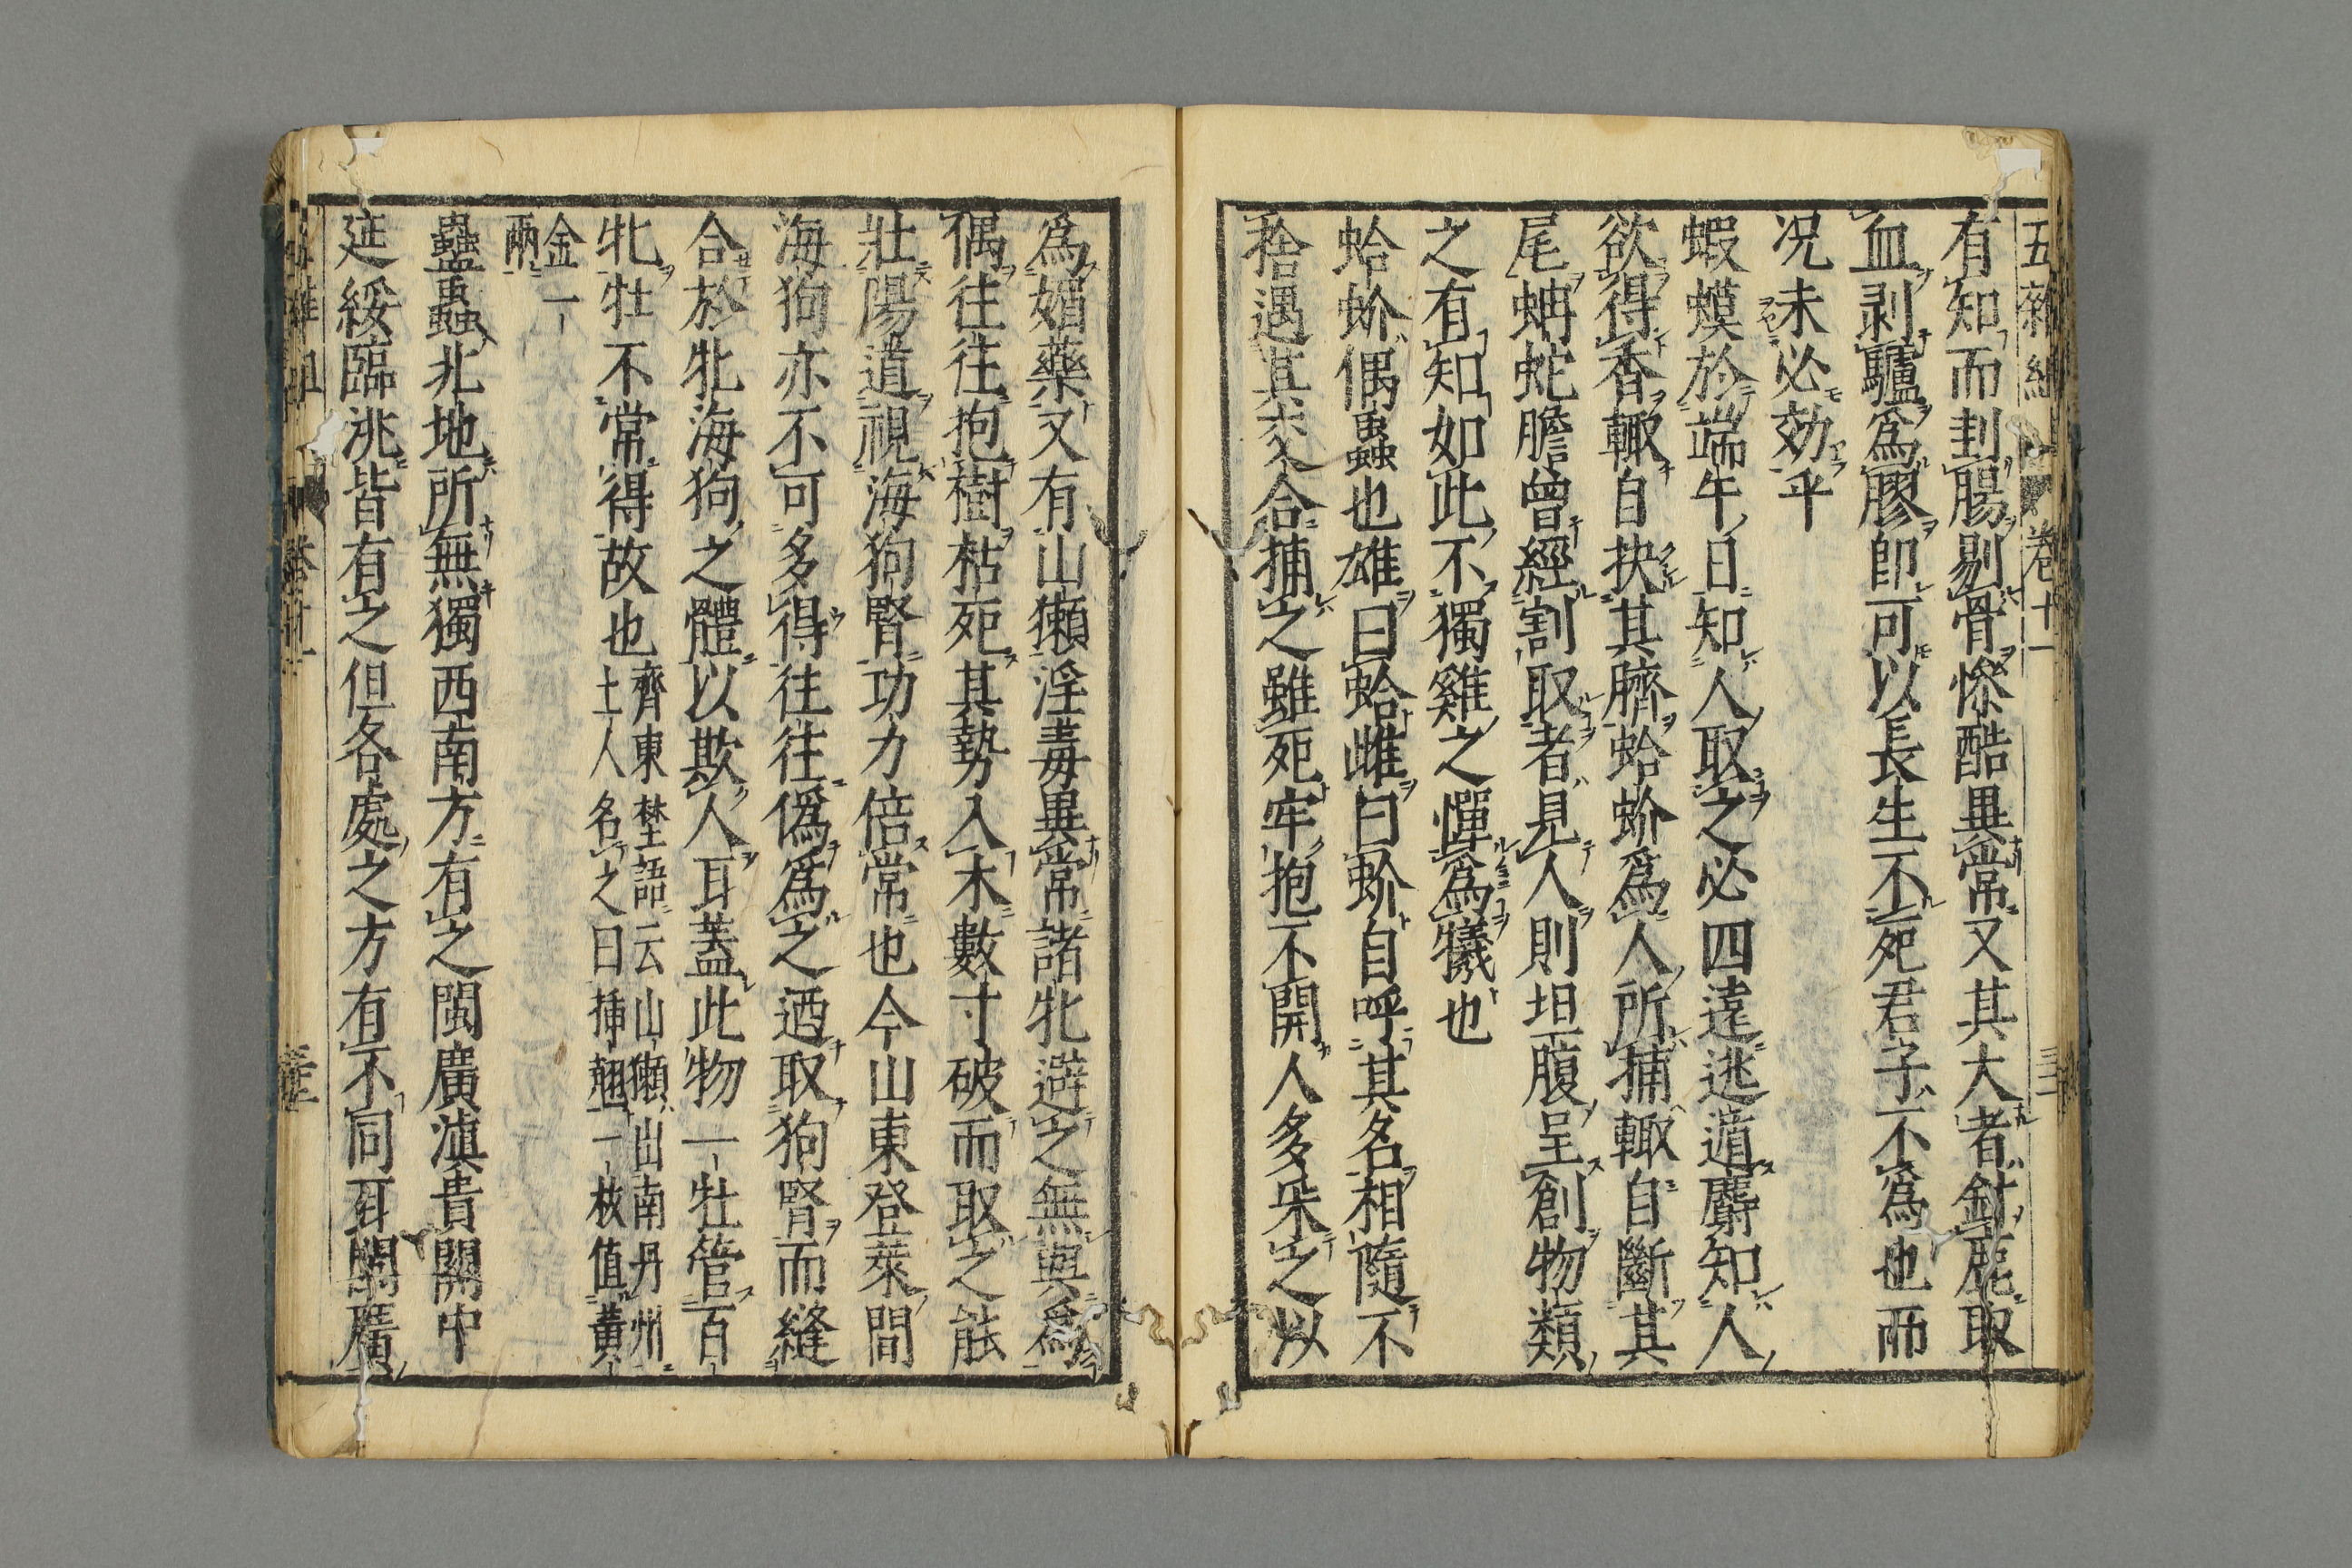 五雜組 卷十一
有知而刲腸剔骨慘酷異常又其大者釘鹿取
血剥驢為膠卽可以長生不死君子不為也而
况未必効乎
蝦蟆於端午日知人取之必四遠逃遁麝知人
欲得香輙自抉其臍蛤蚧為人所捕輙自斷其
尾蚺蛇膽曾經割取者見人則坦腹呈創物類
之有知如此不獨雞之憚為犧也
蛤蚧偶蟲也雄曰蛤雌曰蚧自呼其名相隨不
捨遇其交合捕之雖死牢抱不開人多采之以
為媚藥又有山獺淫毒異常諸牝避之無與為
偶往往抱樹枯死其勢入木數寸破而取之能
壯陽道視海狗腎功力倍常也今山東登萊間
海狗亦不可多得往往偽為之迺取狗腎而縫
合於牝海狗之體以欺人耳蓋此物一牡管百
牝牡不常得故也齊東埜語云山獺出南丹州
土人名之曰插翹一枚值黃
金一
兩
蠱蟲北地所無獨西南方有之閩廣滇貴關中
延綏臨洮皆有之但各處之方有不同耳閩廣